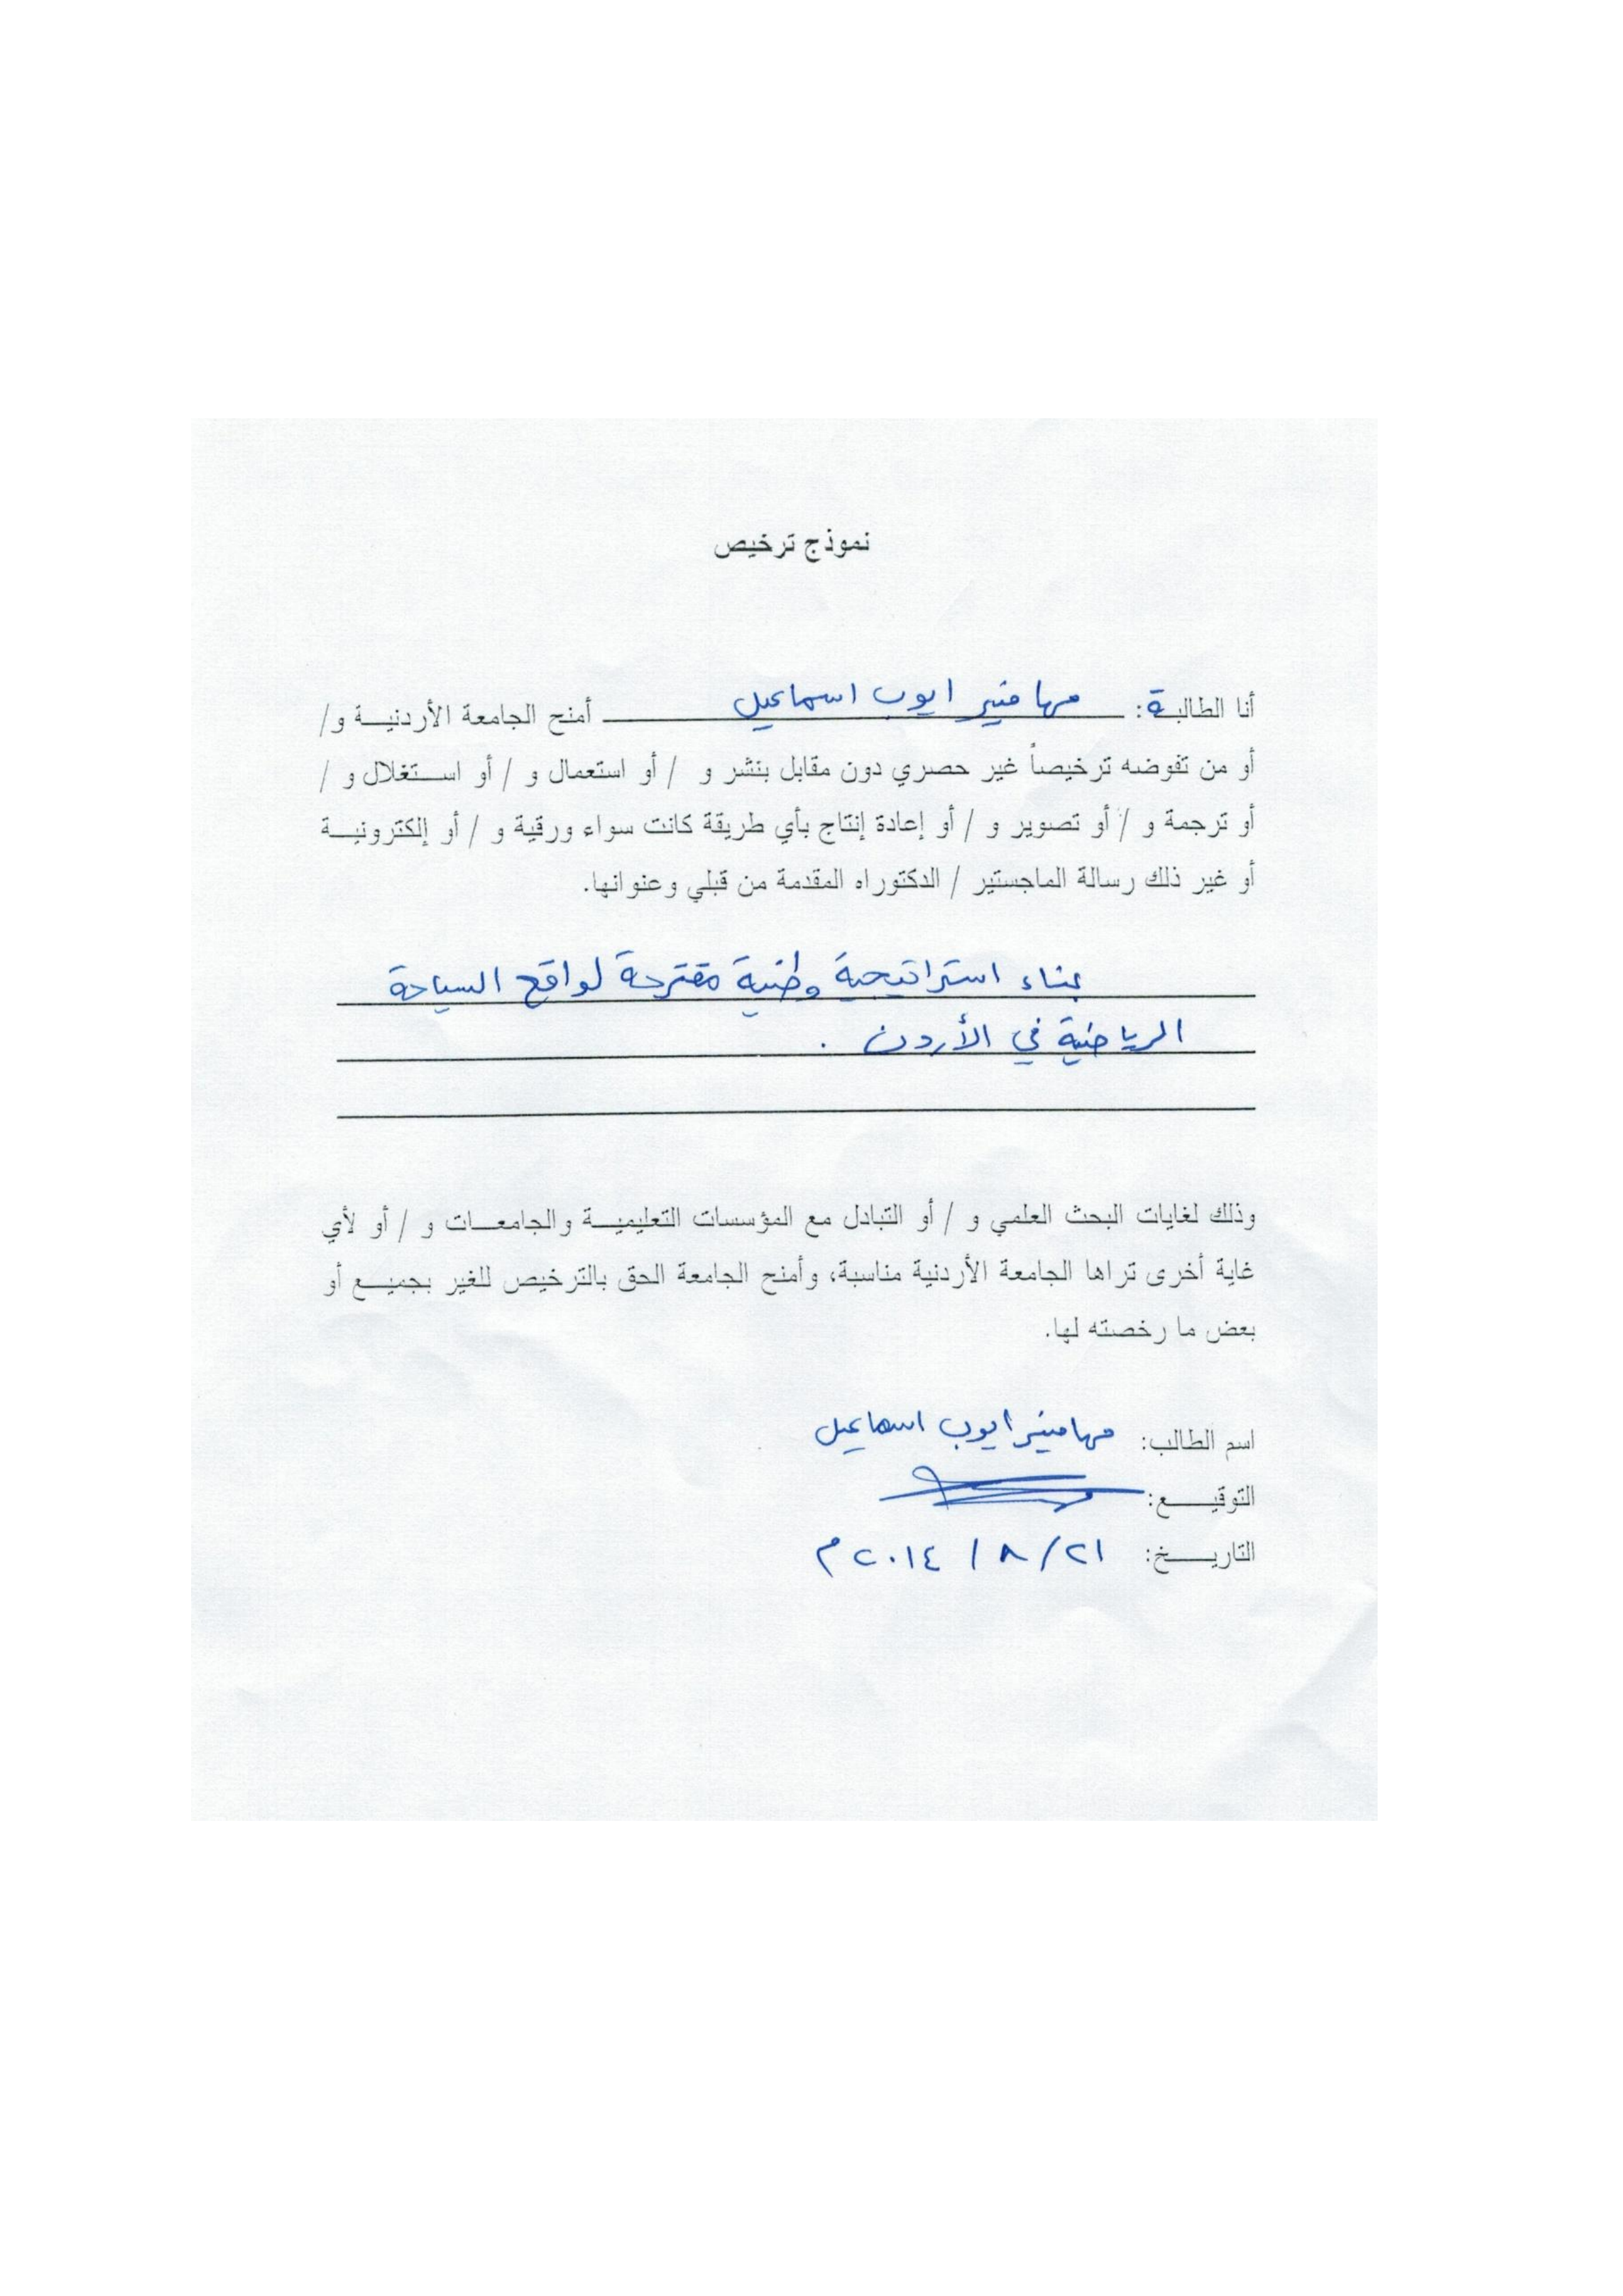 نموذج ترخيص
أنا الطالبة: مها منير ايوب اسماعيل أمنح الجامعة الأردنيـــة و/
أو من تفوضه ترخيصاً غير حصري دون مقابل بنشر و / أو استعمال و / أو استغلال و /
أو ترجمة و / أو تصوير و / أو إعادة إنتاج بأي طريقة كانت سواء ورقية و / أو إلكترونيـــة
أو غير ذلك رسالة الماجستير / الدكتوراه المقدمة من قبلي وعنوانها.
بناء استراتيجية وطنية مقترحة لواقع السياحة
الرياضية في الأردن .
وذلك لغايات البحث العلمي و / أو التبادل مع المؤسسات التعليميـــة والجامعـــات و / أو لأي
غاية أخرى تراها الجامعة الأردنية مناسبة، وأمنح الجامعة الحق بالترخيص للغير بجميـــع أو
بعض ما رخصته لها.
اسم الطالب: مها منير ايوب اسماعيل
التوقيـــع:
التاريـــخ: ٢١/ ٨ / ٢٠١٤ م